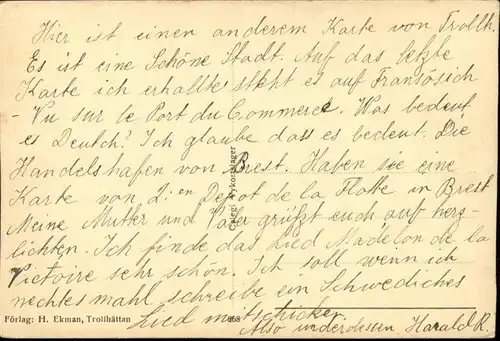 Hier ist einen anderem Karte von Trollh.
Es ist eine Schöne Stadt. Auf das letzte
Karte ich erhalte steht es auf Fransösich
- Vu sur le Port du Commerce. Was bedeut
es Deutch? Ich glaube dass es bedeut. Die
Handelshafen von Brest. Haben sie eine
Karte von D:en Depot de la Flotte in Brest
Meine Mutter und Vater grüßt euch auf herz-
lichten. Ich finde das Lied Madelon de la
Victoire sehr schön. Ich soll wenn ich
nechtes mahl schreibe ein Schwediches
Lied mitschicker.
Also underdessen Harald R.
Förlag: H. Ekman, Trollhättan